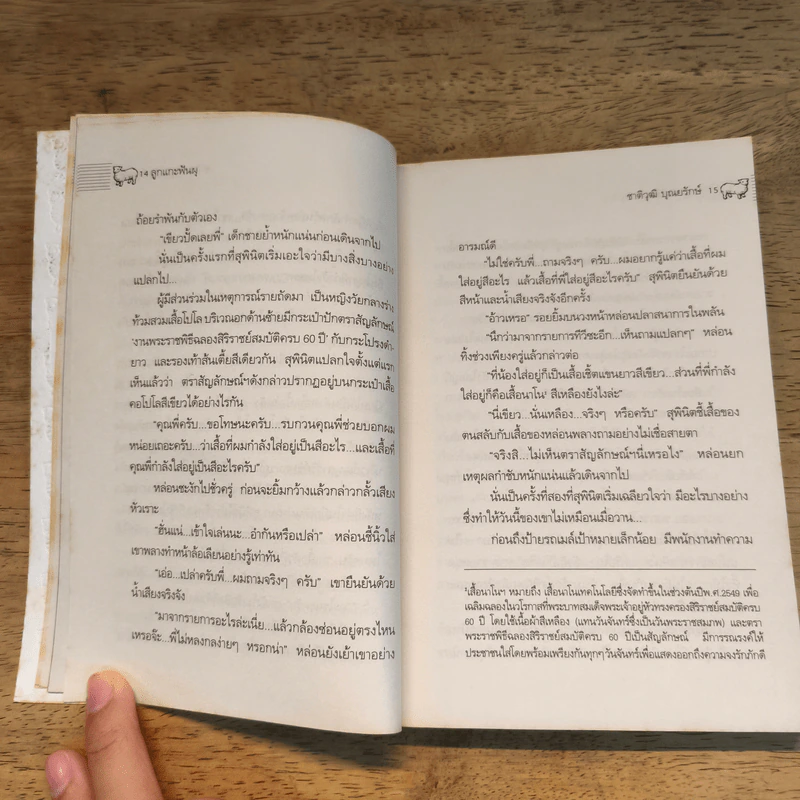 14 ลูกแกะฟันผุ
ถ้อยรำพันกับตัวเอง
“เขียวปั้ดเลยพี่” เด็กชายย้ำหนักแน่นก่อนเดินจากไป
นั่นเป็นครั้งแรกที่สุพินิตเริ่มเอะใจว่ามีบางสิ่งบางอย่าง
แปลกไป...
ผู้มีส่วนร่วมในเหตุการณ์รายถัดมา เป็นหญิงวัยกลางร่าง
ท้วมสวมเสื้อโปโล บริเวณอกด้านซ้ายมีกระเป๋าปักตราสัญลักษณ์
‘งานพระราชพิธีฉลองสิริราชย์สมบัติครบ 60 ปี’ กับกระโปรงดำ
ยาว และรองเท้าส้นเตี้ยสีเดียวกัน สุพินิตแปลกใจตั้งแต่แรก
เห็นแล้วว่า ตราสัญลักษณ์ฯดังกล่าวปรากฏอยู่บนกระเป๋าเสื้อ
คอโปโลสีเขียวได้อย่างไรกัน
“คุณพี่ครับ...ขอโทษนะครับ...รบกวนคุณพี่ช่วยบอกผม
หน่อยเถอะครับ...ว่าเสื้อที่ผมกำลังใส่อยู่เป็นสีอะไร...และเสื้อที่
คุณพี่กำลังใส่อยู่เป็นสีอะไรครับ”
หล่อนชะงักไปชั่วครู่ ก่อนจะยิ้มกว้างแล้วกล่าวกลั้วเสียง
หัวเราะ
“ฮั่นแน่...เข้าใจเล่นนะ...อำกันหรือเปล่า” หล่อนชี้นิ้วใส่
เขาพลางทำหน้าล้อเลียนอย่างรู้เท่าทัน
“เอ่อ...เปล่าครับพี่...ผมถามจริงๆ ครับ” เขายืนยันด้วย
น้ำเสียงจริงจัง
“มาจากรายการอะไรล่ะเนี่ย...แล้วกล้องซ่อนอยู่ตรงไหน
เหรอจ๊ะ...พี่ไม่หลงกลง่ายๆ หรอกน่า” หล่อนยังเย้าเขาอย่าง
ชาติวุฒิ บุณยรักษ์ 15
อารมณ์ดี
“ไม่ใช่ครับพี่...ถามจริงๆ ครับ...ผมอยากรู้แค่ว่าเสื้อที่ผม
ใส่อยู่สีอะไร แล้วเสื้อที่พี่ใส่อยู่สีอะไรครับ” สุพินิตยืนยันด้วย
สีหน้าและน้ำเสียงจริงจังอีกครั้ง
“อ้าวเหรอ” รอยยิ้มบนวงหน้าหล่อนปลาสนาการในพลัน
“นึกว่ามาจากรายการทีวีซะอีก...เห็นถามแปลกๆ” หล่อน
ทิ้งช่วงเพียงครู่แล้วกล่าวต่อ
“ที่น้องใส่อยู่ก็เป็นเสื้อเชิ้ตแขนยาวสีเขียว...ส่วนที่พี่กำลัง
ใส่อยู่ก็คือเสื้อนาโน¹ สีเหลืองยังไงล่ะ”
“นี่เขียว...นั่นเหลือง...จริงๆ หรือครับ” สุพินิตชี้เสื้อของ
ตนสลับกับเสื้อของหล่อนพลางถามอย่างไม่เชื่อสายตา
“จริงสิ...ไม่เห็นตราสัญลักษณ์ฯนี่เหรอไง” หล่อนยก
เหตุผลกำชับหนักแน่นแล้วเดินจากไป
นั่นเป็นครั้งที่สองที่สุพินิตเริ่มเฉลียวใจว่า มีอะไรบางอย่าง
ซึ่งทำให้วันนี้ของเขาไม่เหมือนเมื่อวาน...
ก่อนถึงป้ายรถเมล์เป้าหมายเล็กน้อย มีพนักงานทำความ
¹เสื้อนาโนฯ หมายถึง เสื้อนาโนเทคโนโลยีซึ่งจัดทำขึ้นในช่วงต้นปีพ.ศ.2549 เพื่อ
เฉลิมฉลองในวโรกาสที่พระบาทสมเด็จพระเจ้าอยู่หัวทรงครองสิริราชย์สมบัติครบ
60 ปี โดยใช้เนื้อผ้าสีเหลือง (แทนวันจันทร์ซึ่งเป็นวันพระราชสมภพ) และตรา
พระราชพิธีฉลองสิริราชย์สมบัติครบ 60 ปีเป็นสัญลักษณ์ มีการรณรงค์ให้
ประชาชนใส่โดยพร้อมเพรียงกันทุกๆวันจันทร์เพื่อแสดงออกถึงความจงรักภักดี